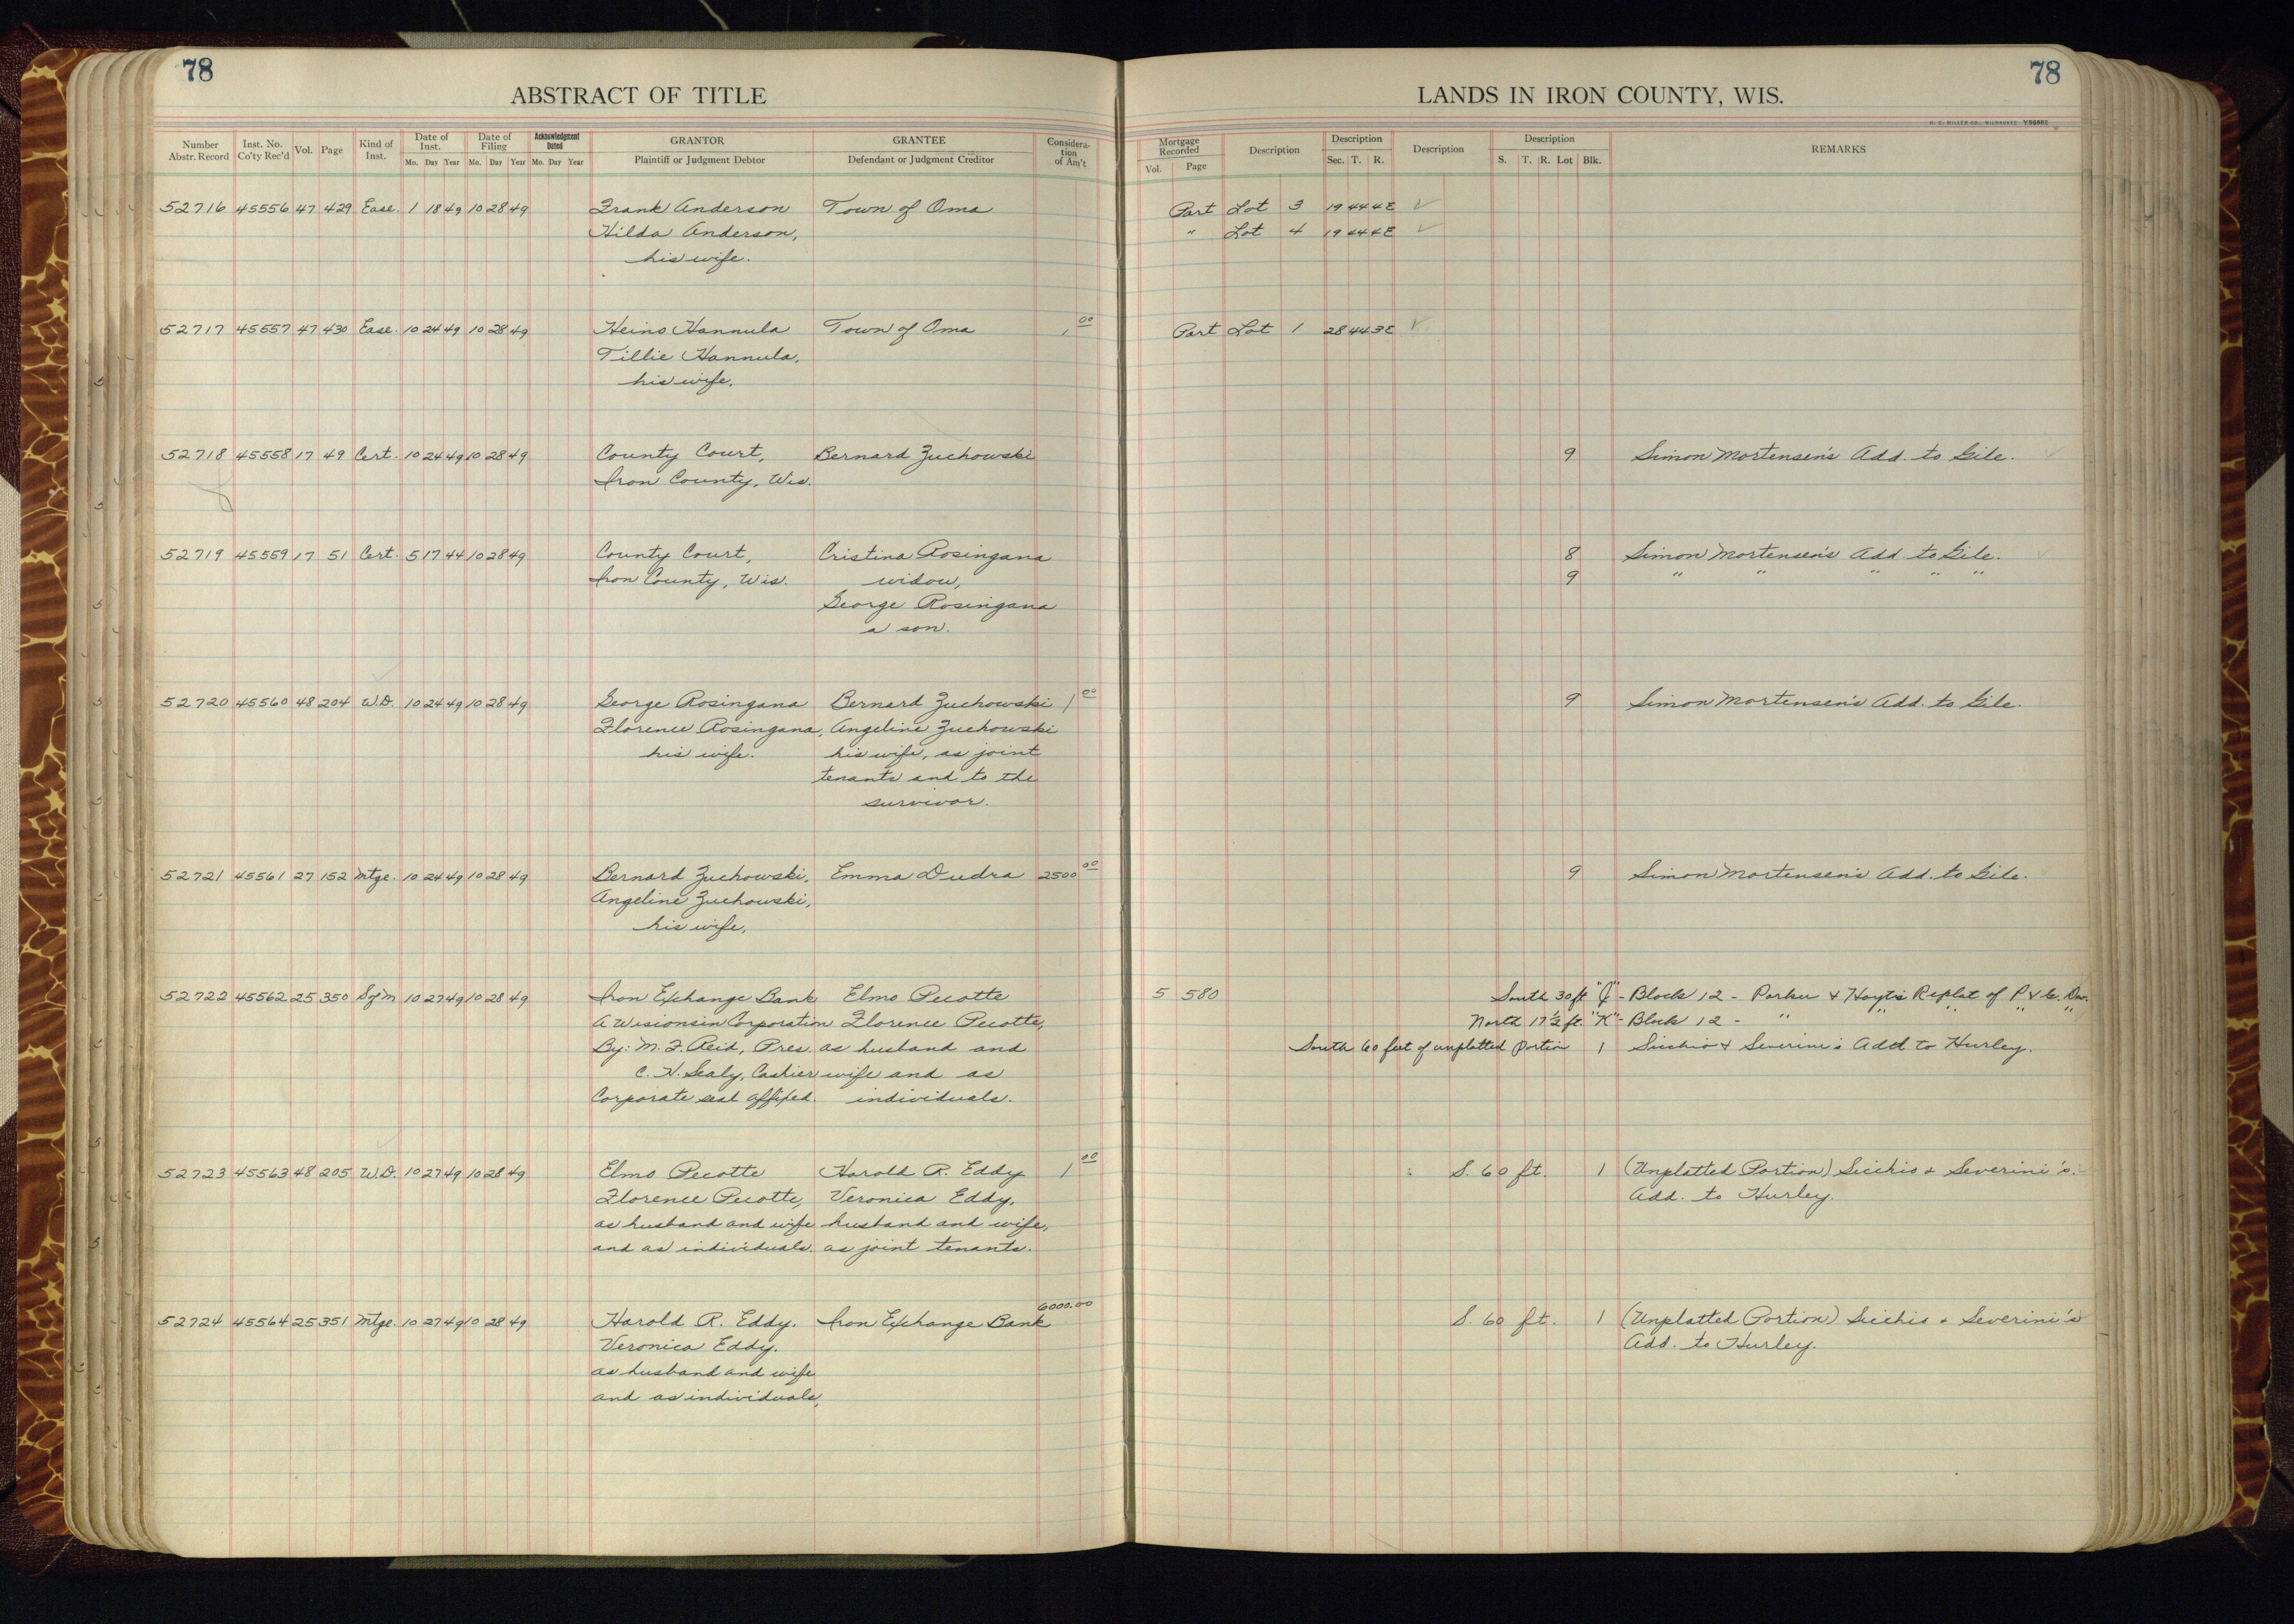 78
ABSTRACT OF TITLE
Number Abstr. Record Inst. No. Co'ty Rec'd Vol. Page Kind of Inst. Date of Inst. Mo. Day Year Date of Filing Mo. Day Year Acknowledgment Dated Mo. Day Year GRANTOR Plaintiff or Judgment Debtor GRANTEE Defendant or Judgment Creditor Considera-tion of Am't
52716 45556 47 429 Ease. 1 18 49 10 28 49 Frank Anderson Town of Oma
Hilda Anderson,
his wife.
52717 45557 47 430 Ease. 10 24 49 10 28 49 Heino Hannula Town of Oma 1 00
Tillie Hannula,
his wife.
52718 45558 17 49 Cert. 10 24 49 10 28 49 County Court, Bernard Zuchowski
Iron County, Wis.
52719 45559 17 51 Cert. 5 17 44 10 28 49 County Court, Cristina Rosingana
Iron County, Wis. widow,
George Rosingana
a son.
52720 45560 48 204 W.D. 10 24 49 10 28 49 George Rosingana Bernard Zuchowski 1 00
Florence Rosingana, Angeline Zuchowski
his wife. his wife, as joint
tenants and to the
survivor.
52721 45561 27 152 Mtge. 10 24 49 10 28 49 Bernard Zuchowski, Emma Dudra 2500 00
Angeline Zuchowski,
his wife,
52722 45562 25 350 10 27 49 10 28 49 Iron Exchange Bank Elmo Pecotte
A Wisionsin Corporation Florence Pecotte,
By: M. F. Reid, Pres. as husband and
C. H. Sealy, Cashier wife and as
Corporate seal affixed. individuals.
52723 45563 48 205 W.D. 10 27 49 10 28 49 Elmo Pecotte Harold R. Eddy 1 00
Florence Pecotte, Veronica Eddy,
as husband and wife husband and wife,
and as individuals. as joint tenants.
6000.00
52724 45564 25 351 Mtge. 10 27 49 10 28 49 Harold R. Eddy. Iron Exchange Bank
Veronica Eddy.
as husband and wife
and as individuals,
78
LANDS IN IRON COUNTY, WIS.
H. C. MILLER CO., MILWAUKEE
Mortgage Recorded Vol. Page Description Description Sec. T. R. Description Description S. T. R. Lot Blk. REMARKS
Part Lot 3 19 44 4E ✓
" Lot 4 19 44 4E ✓
Part Lot 1 28 44 3E ✓
9 Simon Mortensen's Add. to Gile. ✓
8 Simon Mortensen's Add. to Gile. ✓
9 " " " " "
9 Simon Mortensen's Add. to Gile.
9 Simon Mortensen's Add. to Gile.
5 580 South 30 ft "J" - Block 12 - Parker & Hoyt's Replat of P & Co. Div.
North 17 1/2 ft. "K" - Block 12 - " " " " "
South 60 feet of unplatted portion 1 Sicchio & Severini's Add to Hurley.
S. 60 ft. 1 (Unplatted Portion) Sicchio & Severini's.
Add. to Hurley.
S. 60 ft. 1 (Unplatted Portion) Sicchio & Severini's
Add. to Hurley.